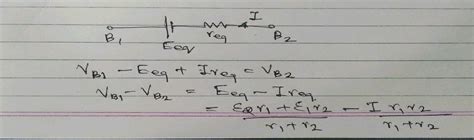 I
B₁ E_eq r_eq B₂
V_B₁ − E_eq + I r_eq = V_B₂
V_B₁ − V_B₂ = E_eq − I r_eq
= (E₂ r₁ + E₁ r₂)/(r₁ + r₂) − I (r₁ r₂)/(r₁ + r₂)